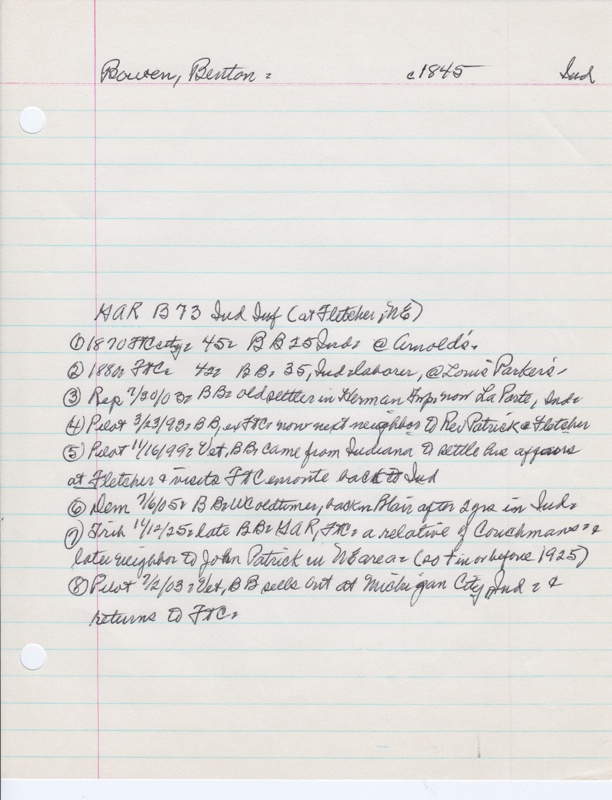 Bowen, Benton = c1845 Ind
GAR B 73 Ind Inf (at Fletcher, NE)
① 1870 FtC city= 45= B B 25 Ind= @ Arnold's=
② 1880= FtC= 42= B B= 35, Ind= laborer, @ Louis Parker's=
③ Rep 7/20/03= B B= old settler in Herman Twp= now La Porte, Ind=
④ Pilot 3/23/93= B B, ex FtC= now next neighbor to Rev Patrick @ Fletcher
⑤ Pilot 11/16/99= Vet, B B= came from Indiana to settle his affairs
at Fletcher & visits FtC enroute back to Ind
⑥ Dem 7/6/05= B B= WC oldtimer, back in Blair after 2 yrs in Ind=
⑦ Trib 11/12/25= late B B= GAR, FtC= a relative of Couchmans= &
later neighbor to John Patrick in NE area= (so in or before 1925)
⑧ Pilot 7/2/03= Vet, B B sells out at Michigan City, Ind= &
returns to FtC=